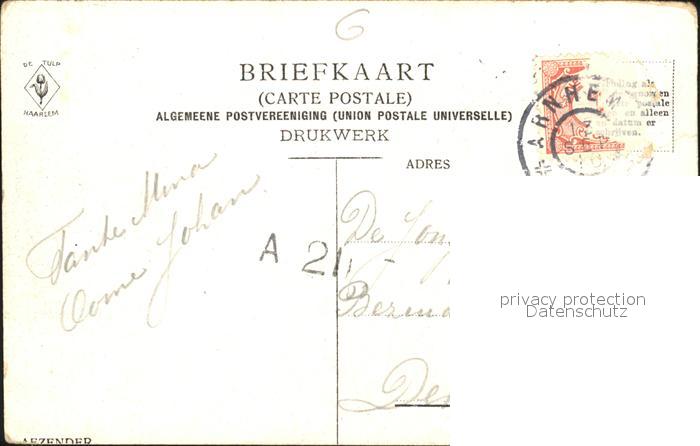 6
DE TULP
HAARLEM
BRIEFKAART
(CARTE POSTALE)
ALGEMEENE POSTVEREENIGING (UNION POSTALE UNIVERSELLE)
DRUKWERK
ADRES
ARNHEM
en alleen
en datum er
Tante Mina
Oome Johan
A 21,-
De
privacy protection
Datenschutz
AFZENDER